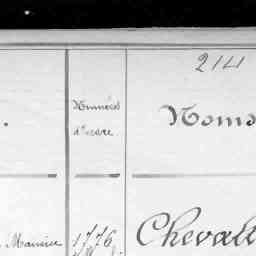 214
Numéros
d'ordre
Noms
Maurice
1776
Cheval